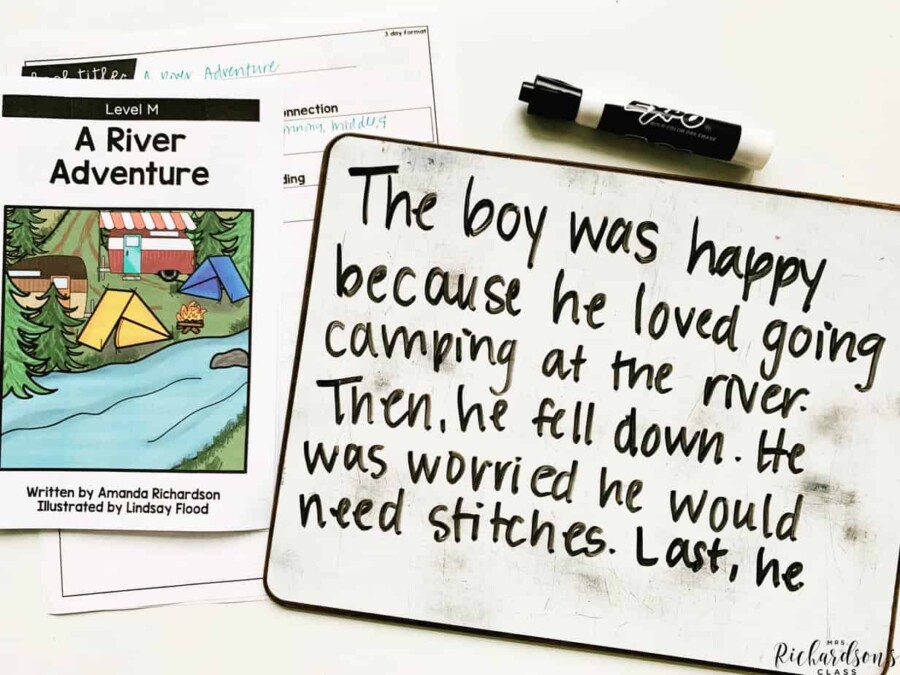 3 day format
A River Adventure
Level M
A River
Adventure
Written by Amanda Richardson
Illustrated by Lindsay Flood
EXPO
The boy was happy
because he loved going
camping at the river.
Then, he fell down. He
was worried he would
need stitches. Last, he
MRS.
Richardson's
CLASS